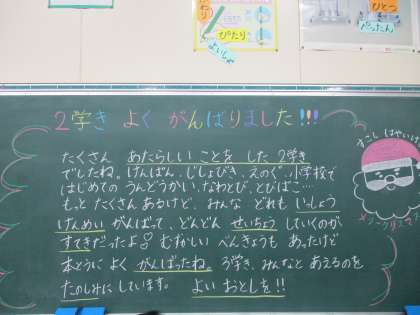 ぴたり
ひとつ
だったん
2学き よく がんばりました!!!
すこし はやいけど
たくさん あたらしい ことを した 2学き
でしたね。けんばん、じしょびき、えのぐ、小学校で
はじめての うんどうかい、なわとび、とびばこ…
もっと たくさん あるけど、みんな どれも いっしょう
けんめい がんばって、どんどん せいちょう していくのが
すてきだったよ♪ むずかしい べんきょうも あったけど
本とうに よく がんばったね。3学き、みんなと あえるのを
たのしみに しています。 よい おとしを!!
メリークリスマス